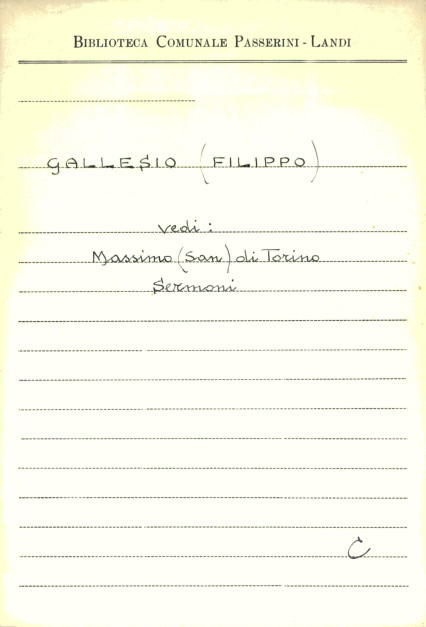 BIBLIOTECA COMUNALE PASSERINI - LANDI
GALLESIO (FILIPPO)
vedi:
Massimo (San) di Torino
Sermoni
C